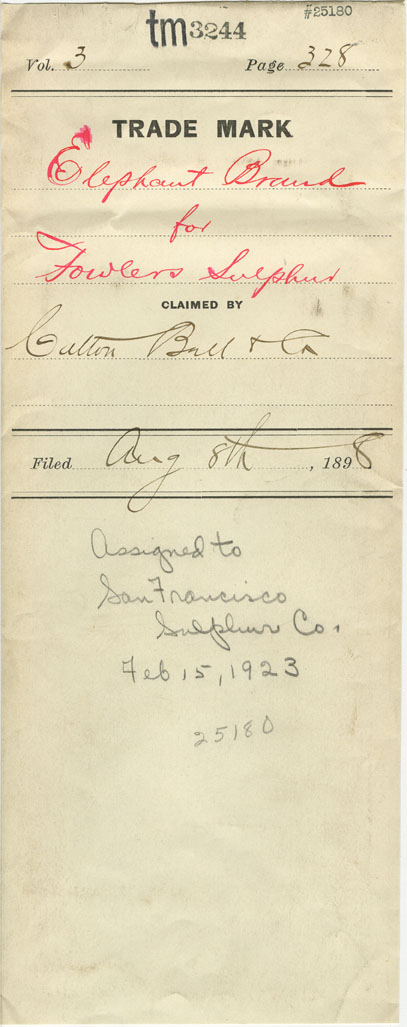 #25180
tm3244
Vol. 3 Page 328
TRADE MARK
Elephant Brand
for
Fowlers Sulphur
CLAIMED BY
Cutton Ball & Co
Filed Aug 8th, 1898
Assigned to
San Francisco
Sulphur Co.
Feb 15, 1923
25180